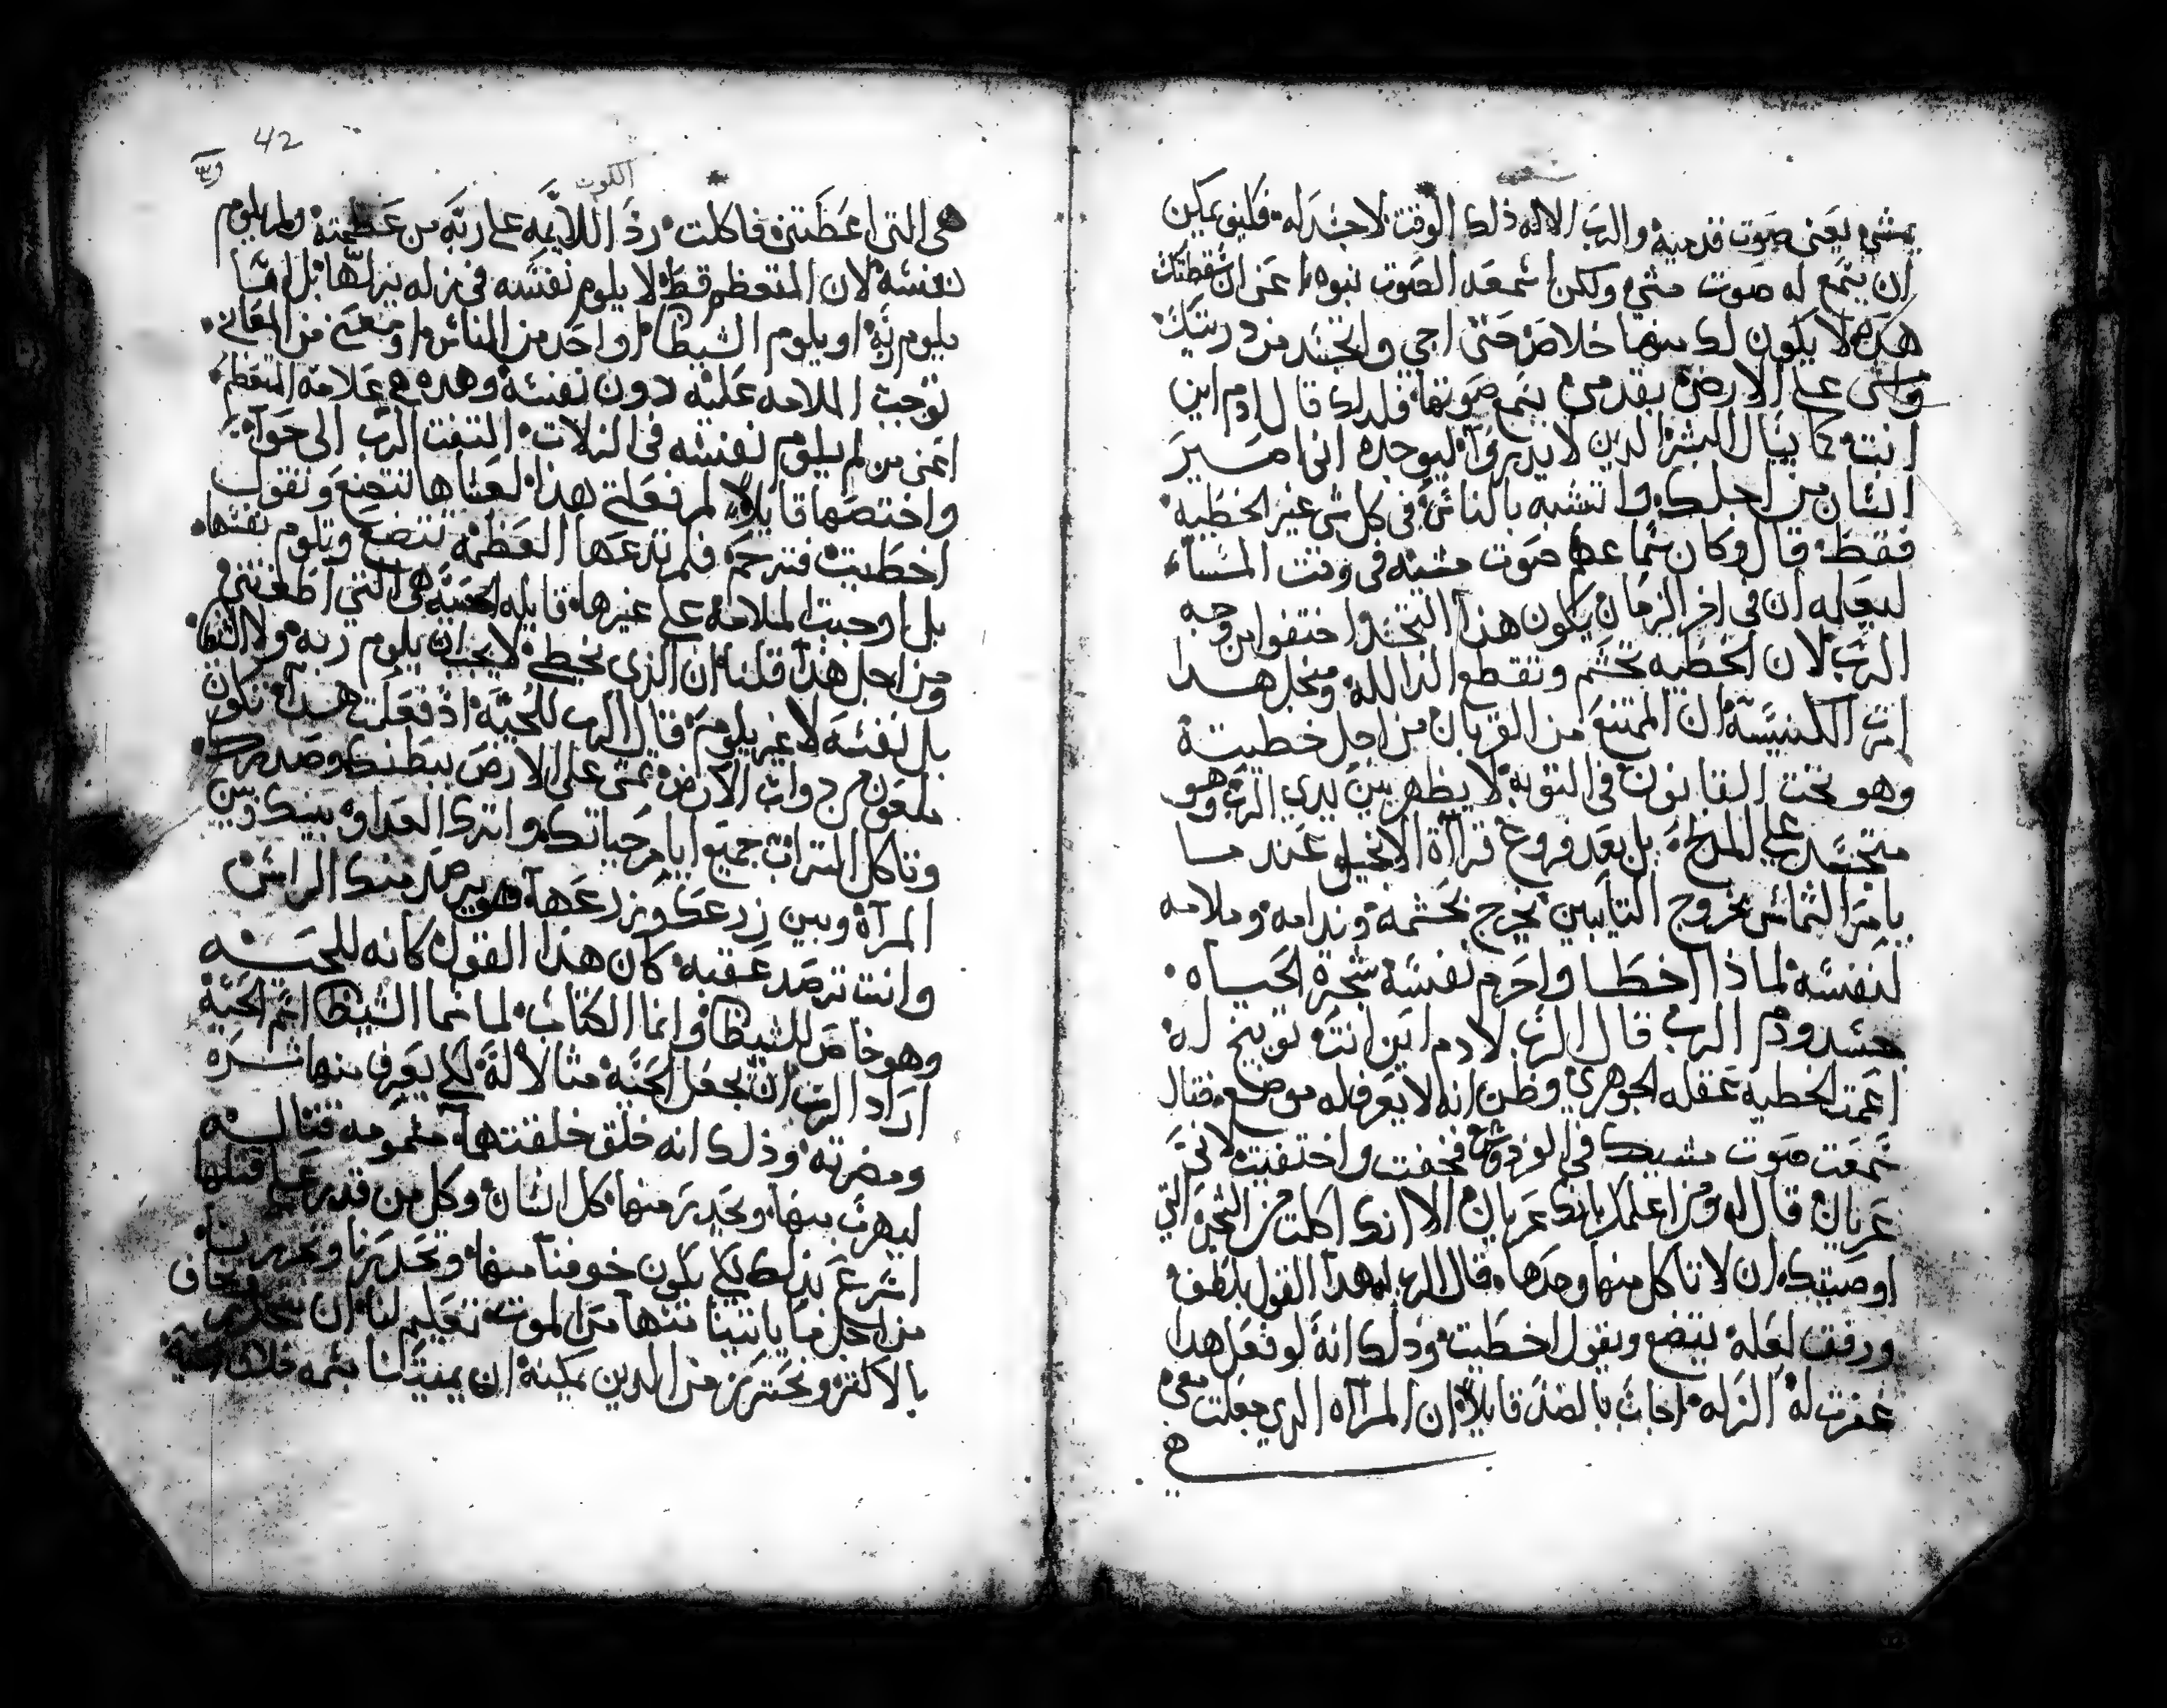 يمشي يعني صوت قدميه والرب الاله ذلك الوقت لا جسد له فكيف يمكن
ان يسمع له صوت مشي ولكن اسمعه الصوت نبوه اعني ان سقطتك
هذه لا يكون لك منها خلاص حتى اجي واتجسد من ذريتك
وامشى على الارض بقدمي يسمع صوتها فلذلك قال لادم اين
انت كما يسال البشر الذين لا يدروا ليوجده اني اصير
انسان من اجلك واتشبه بالناس في كل شي غير الخطيه
فقط قال وكان سماعهم صوت مشيه في وقت المساء
ليعلمه ان في اخر الزمان يكون هذا التجسد واختفوا من وجه
الرب لان الخطيه تحشم وتقطع الدالله ومنجل هدا
امرت الكنيسة ان الممتنع من القربان من اجل خطيته
وهو تحت القانون في التوبه لا يظهر بين يدي الرب وهو
متجسد علي المدبح بل بعد فروغ قرااة الانجيل عند ما
يامر الشماس بخروج التايبين يخرج بحشمه وندامه وملامه
لنفسه لماذا اخطا واحرم نفسه شجرة الحياه
جسد ودم الرب قال الرب لادم اين انت توبيخ له
اعمت الخطيه عقله الجوهري وظن انه لا يعرف له موضع فقال
سمعت صوت مشيك في الفردوس فخفت واختفيت لاني
عريان قال له ومن اعلمك بانك عريان الا انك اكلت من الشجره التي
اوصيتك ان لا تاكل منها وحدها قال الرب له هدا القول بلطف
ورفق لعله يتضع ويقول اخطيت وذلك انه لو فعل هدا
غفرت له الزله اجاب بالضد قايلا ان المرآه الدي جعلت معي
هي
42
هي التي اعظتني فاكلت رد اللايمه على ربه من عظمته ولم يلوم
نفسه لان المتعظم قط لا يلوم نفسه في زله يزلها بل اما
يلوم ربه او يلوم الشيطان او احد من الناس او معنى من المعاني
توجب الملامه عليه دون نفسه وهده هي علامه المتعظم
اعني من لم يلوم نفسه في الزلات التفت الرب الى حوآ
واختصها قايلا لم فعلتي هذا لعساها تتضع وتقول
اخطيت فترحم فلم تدعها العظمه تتضع وتلوم نفسها
بل اوجبت الملامه على غيرها قايله الحيه هي التي اطغتني
ومن اجل هذا قلنا ان الذي يخطي لا يجب ان يلوم ربه ولا الشيطان
بل نفسه لا غير يلوم قال الرب للحيه اذ فعلت هدا تكون
ملعون من دواب الارض تمشى على الارض ببطنك وصدرك
وتاكل التراب جميع ايام حياتك واترك العداوه بينك وبين
المرآه وبين زرعك وزرعها هو يرصد منك الراس
وانت ترصد عقبه كان هذا القول كانه للحيه
وهو خاص للشيطان وانما الكتاب لما سما الشيطان اسم الحيه
اراد الرب ان يجعل الحيه مثالا له لكي يعرف منها شره
ومضرته وذلك انه خلق خلقتها مسمومه قتاله
ليهرب منها ويحدر منها كل انسان وكل من قدر على قتلها
اسرع بذلك لكي يكون خوفنا منها وتحديرنا
من اجل ما ياتينا منها مر الموت تعليم لنا ان
بالاكثر ونحترز من الدين يمكنه ان يميتنا بسمه